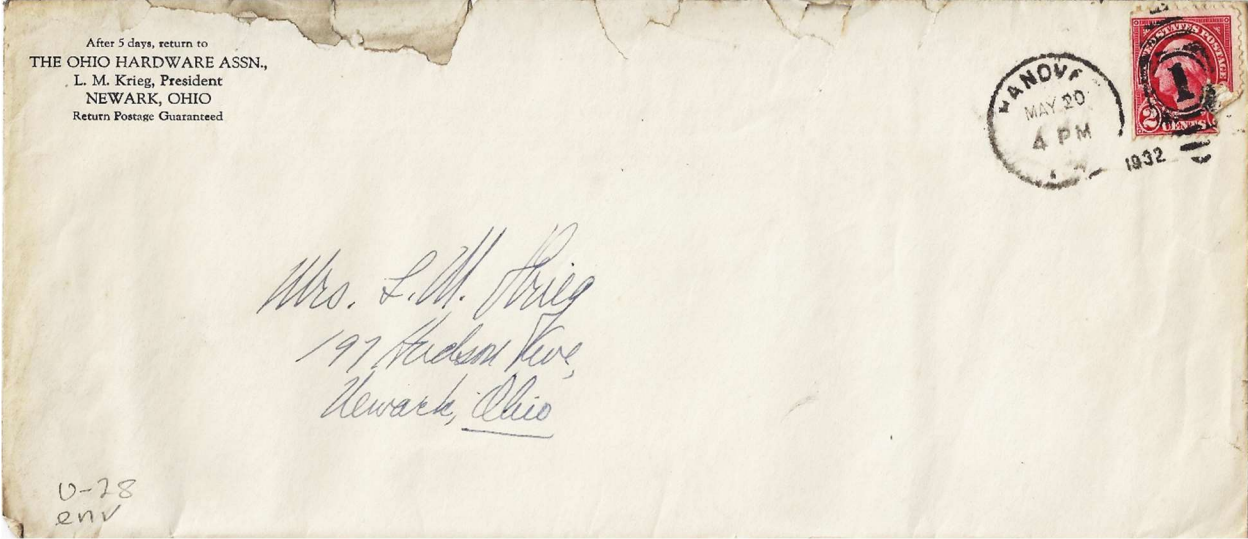 After 5 days, return to
THE OHIO HARDWARE ASSN.,
L. M. Krieg, President
NEWARK, OHIO
Return Postage Guaranteed
HANOVE
MAY 20
4 PM
1932
STATES POSTAGE
1
2 CENTS
Mrs. L. M. Krieg
197 Hudson Ave,
Newark, Ohio
U-28
env